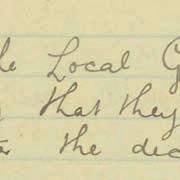 Local G
that they
the dec